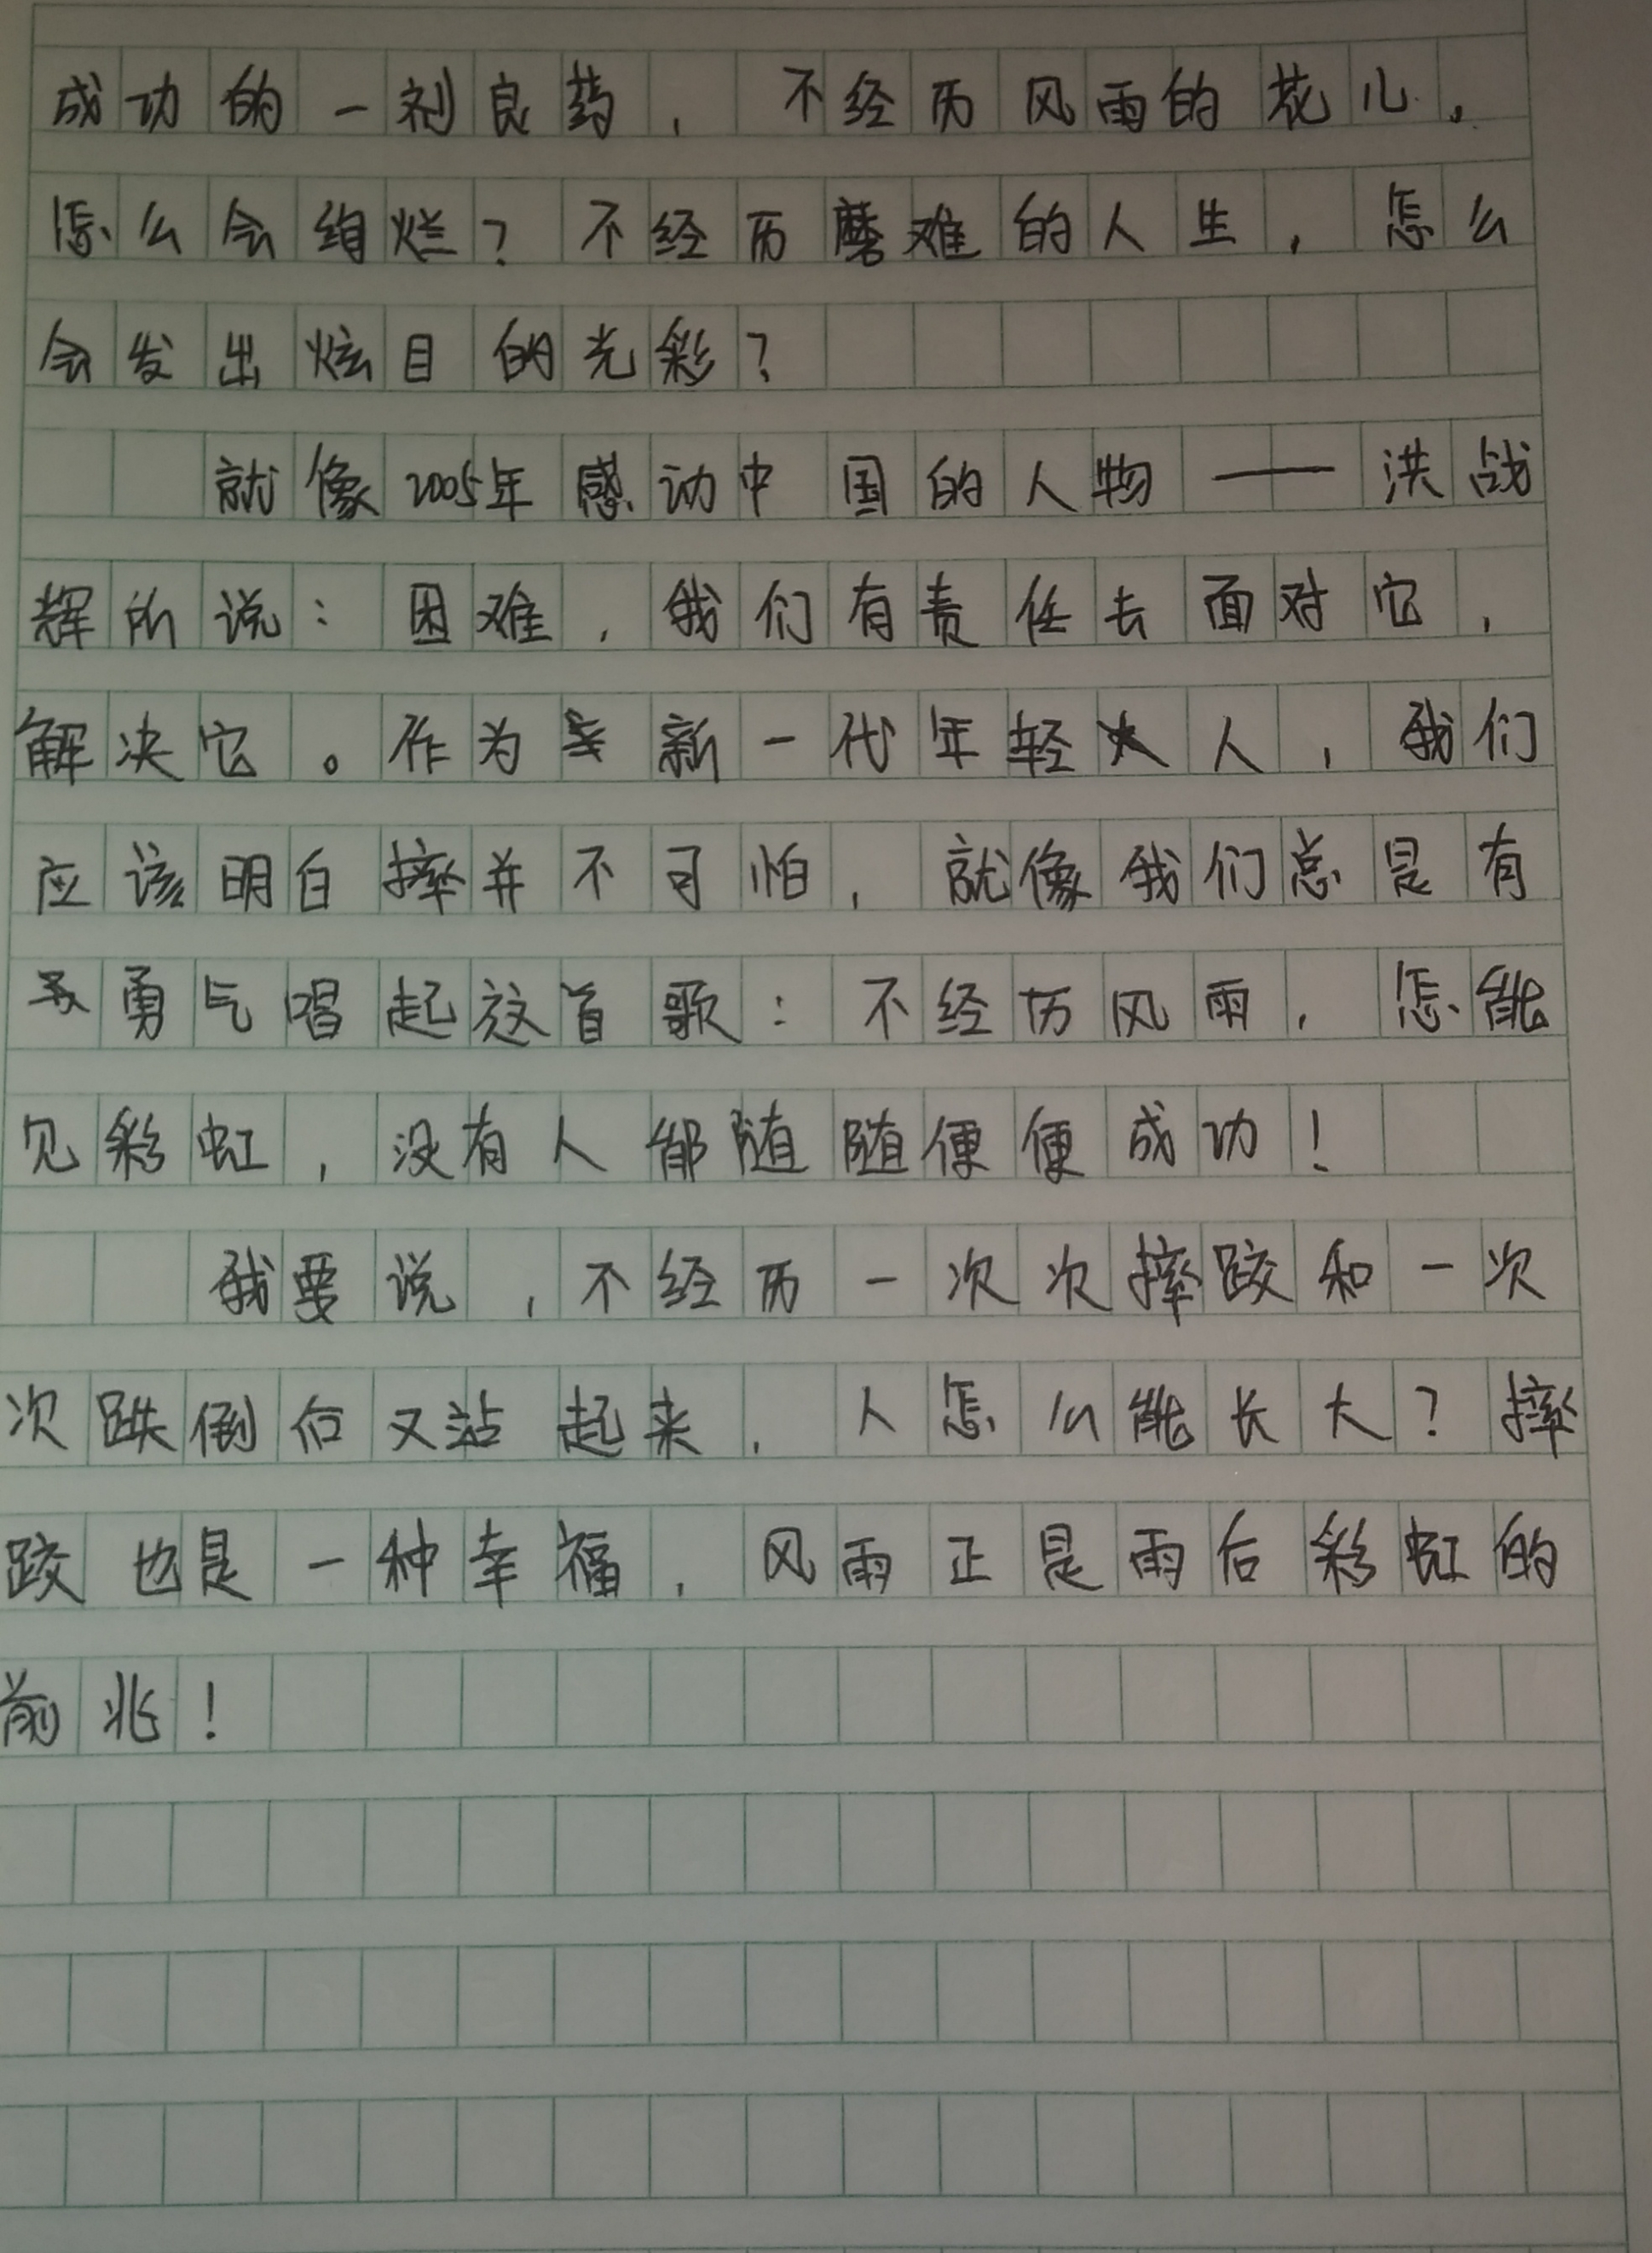 成功的一剂良药，不经历风雨的花儿，
怎么会绚烂？不经历磨难的人生，怎么
会发出炫目的光彩？
就像2005年感动中国的人物——洪战
辉所说：困难，我们有责任去面对它，
解决它。作为新一代年轻人，我们
应该明白摔并不可怕，就像我们总是有
勇气唱起这首歌：不经历风雨，怎能
见彩虹，没有人能随随便便成功！
我要说，不经历一次次摔跤和一次
次跌倒后又站起来，人怎么能长大？摔
跤也是一种幸福，风雨正是雨后彩虹的
前兆！